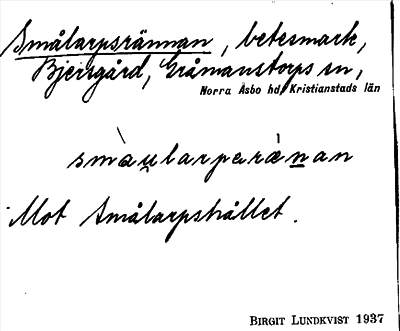 Smålarpsrännan, betesmark,
Bjersgård, Gråmanstorps sn,
Norra Åsbo hd, Kristianstads län
smàu̯larparǽnan
Mot Smålarpshållet.
BIRGIT LUNDKVIST 1937